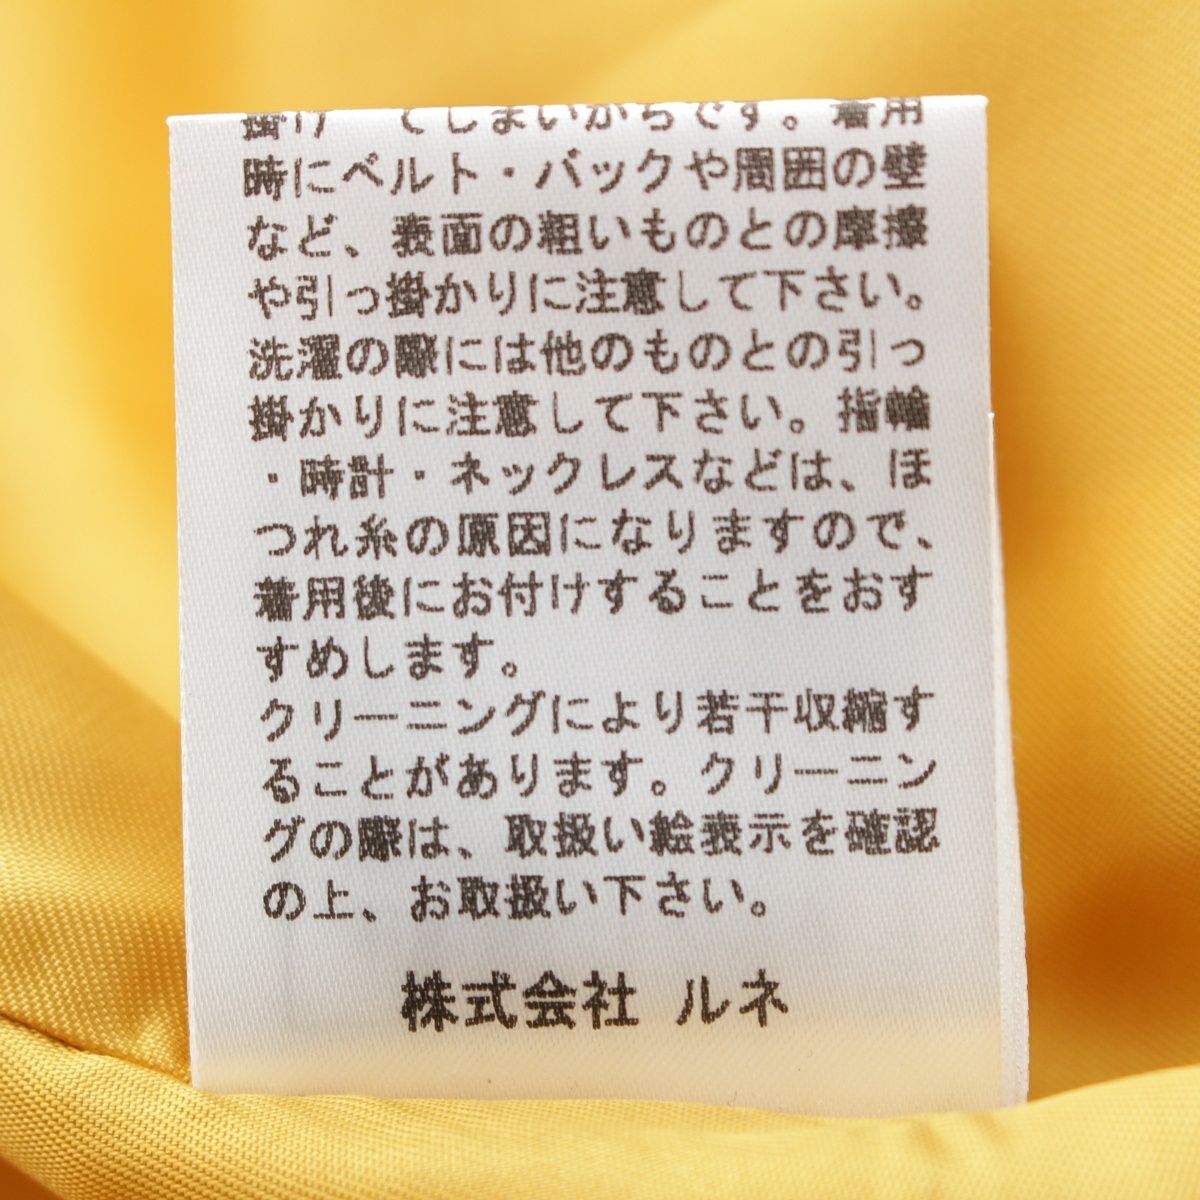 掛け てしまいがちです。着用
時にベルト・バックや周囲の壁
など、表面の粗いものとの摩擦
や引っ掛かりに注意して下さい。
洗濯の際には他のものとの引っ
掛かりに注意して下さい。指輪
・時計・ネックレスなどは、ほ
つれ糸の原因になりますので、
着用後にお付けすることをおす
すめします。
クリーニングにより若干収縮す
ることがあります。クリーニン
グの際は、取扱い絵表示を確認
の上、お取扱い下さい。
株式会社 ルネ